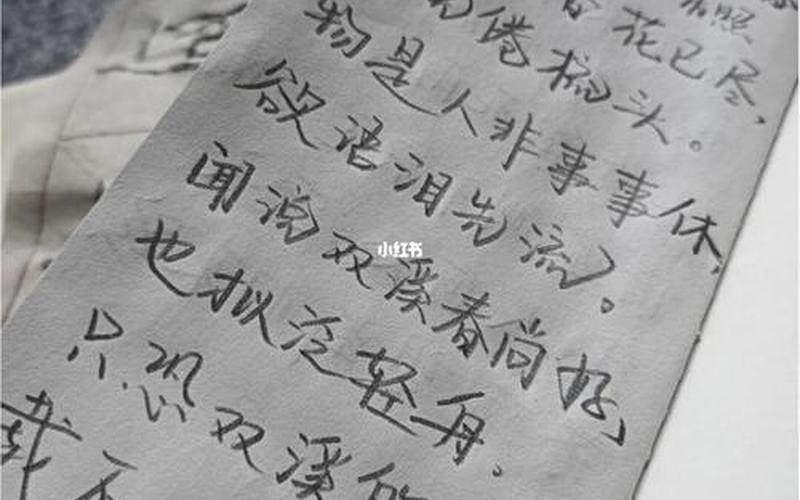 照
花已尽,
倦梳头。
物是人非事事休,
欲语泪先流。
闻说双溪春尚好,
也拟泛轻舟。
只恐双溪
载不
小红书